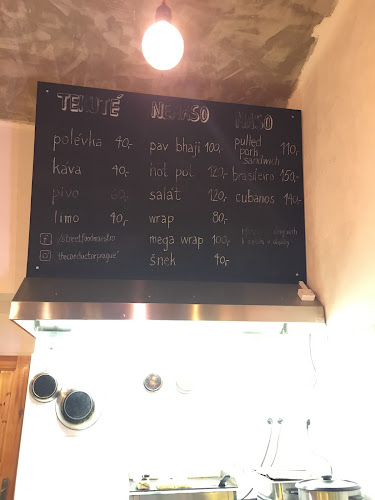 TEKUTÉ
polévka 40,-
káva 40,-
pivo 60,-
limo 40,-
/streetfoodmaistro
theconductorprague
NEMASO
pav bhaji 100,-
hot pot 120,-
salát 120,-
wrap 80,-
mega wrap 100,-
šnek 40,-
MASO
pulled
pork
sandwich 110,-
brasileiro 150,-
cubanos 140,-